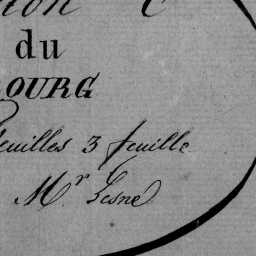 ion C
du
OURG
feuilles 3 feuille
Mr Lesne